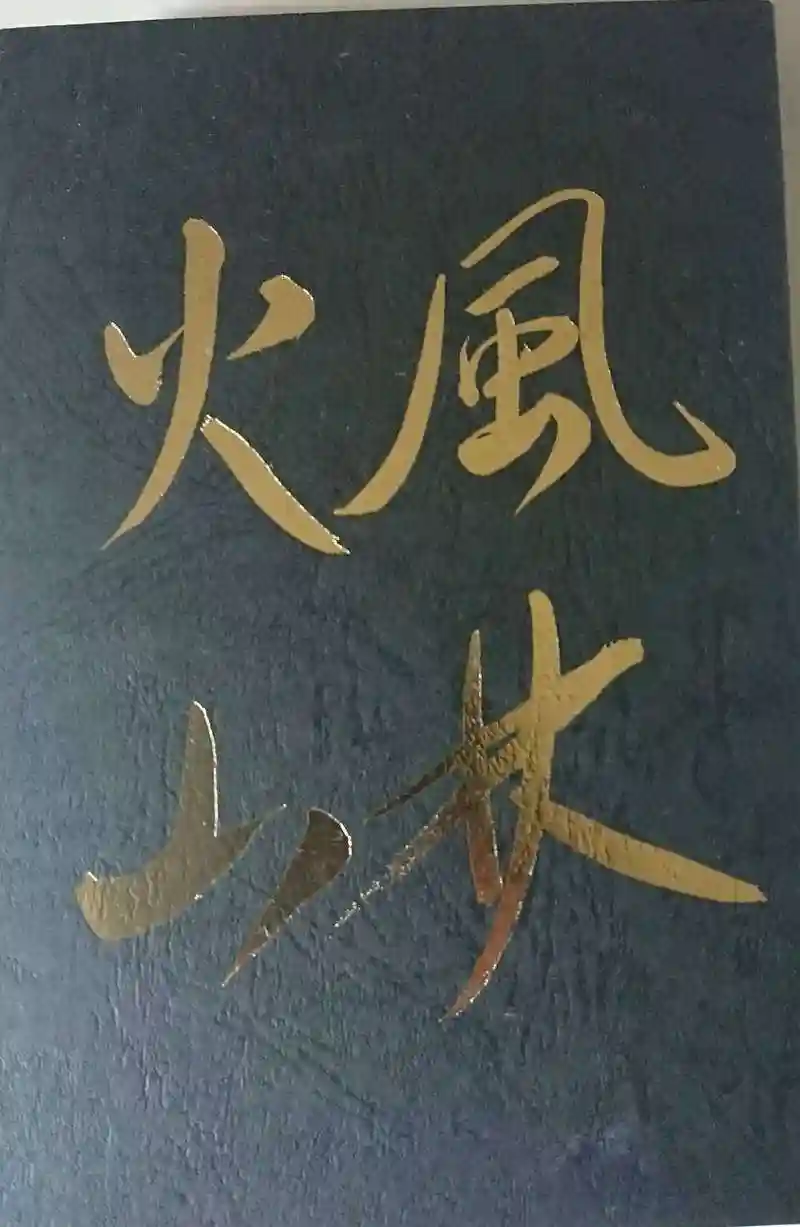 風林
火山